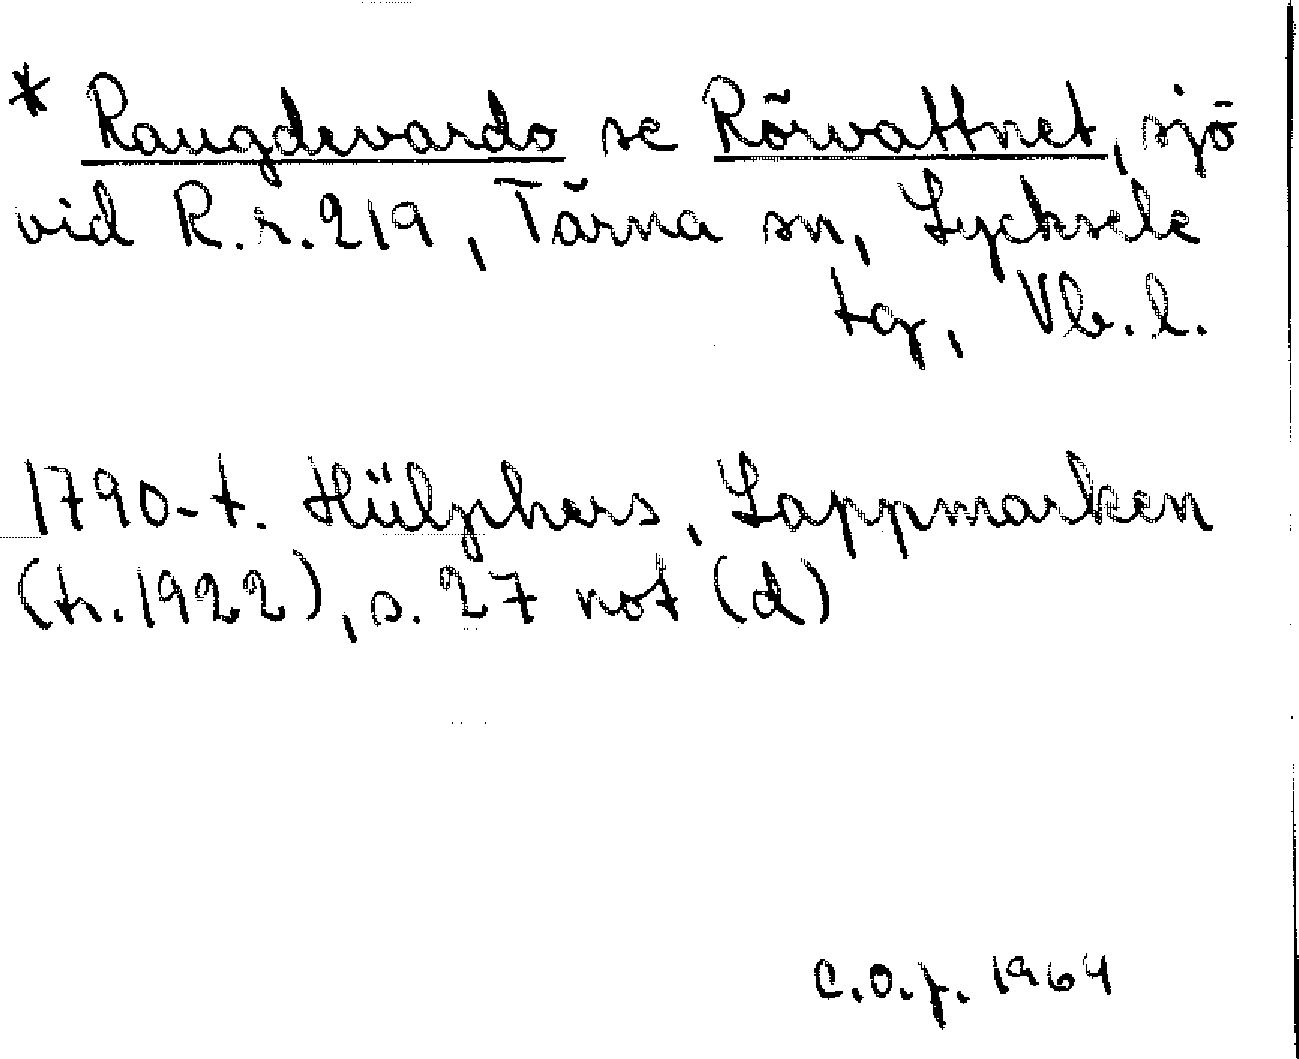 * Raugdevardo se Rörvattnet, sjö
vid R.r.219, Tärna sn, Lycksele
tg, Vb.l.
1790-t. Hülphers, Lappmarken
(tr. 1922), s. 27 not (d)
C.O.J. 1964